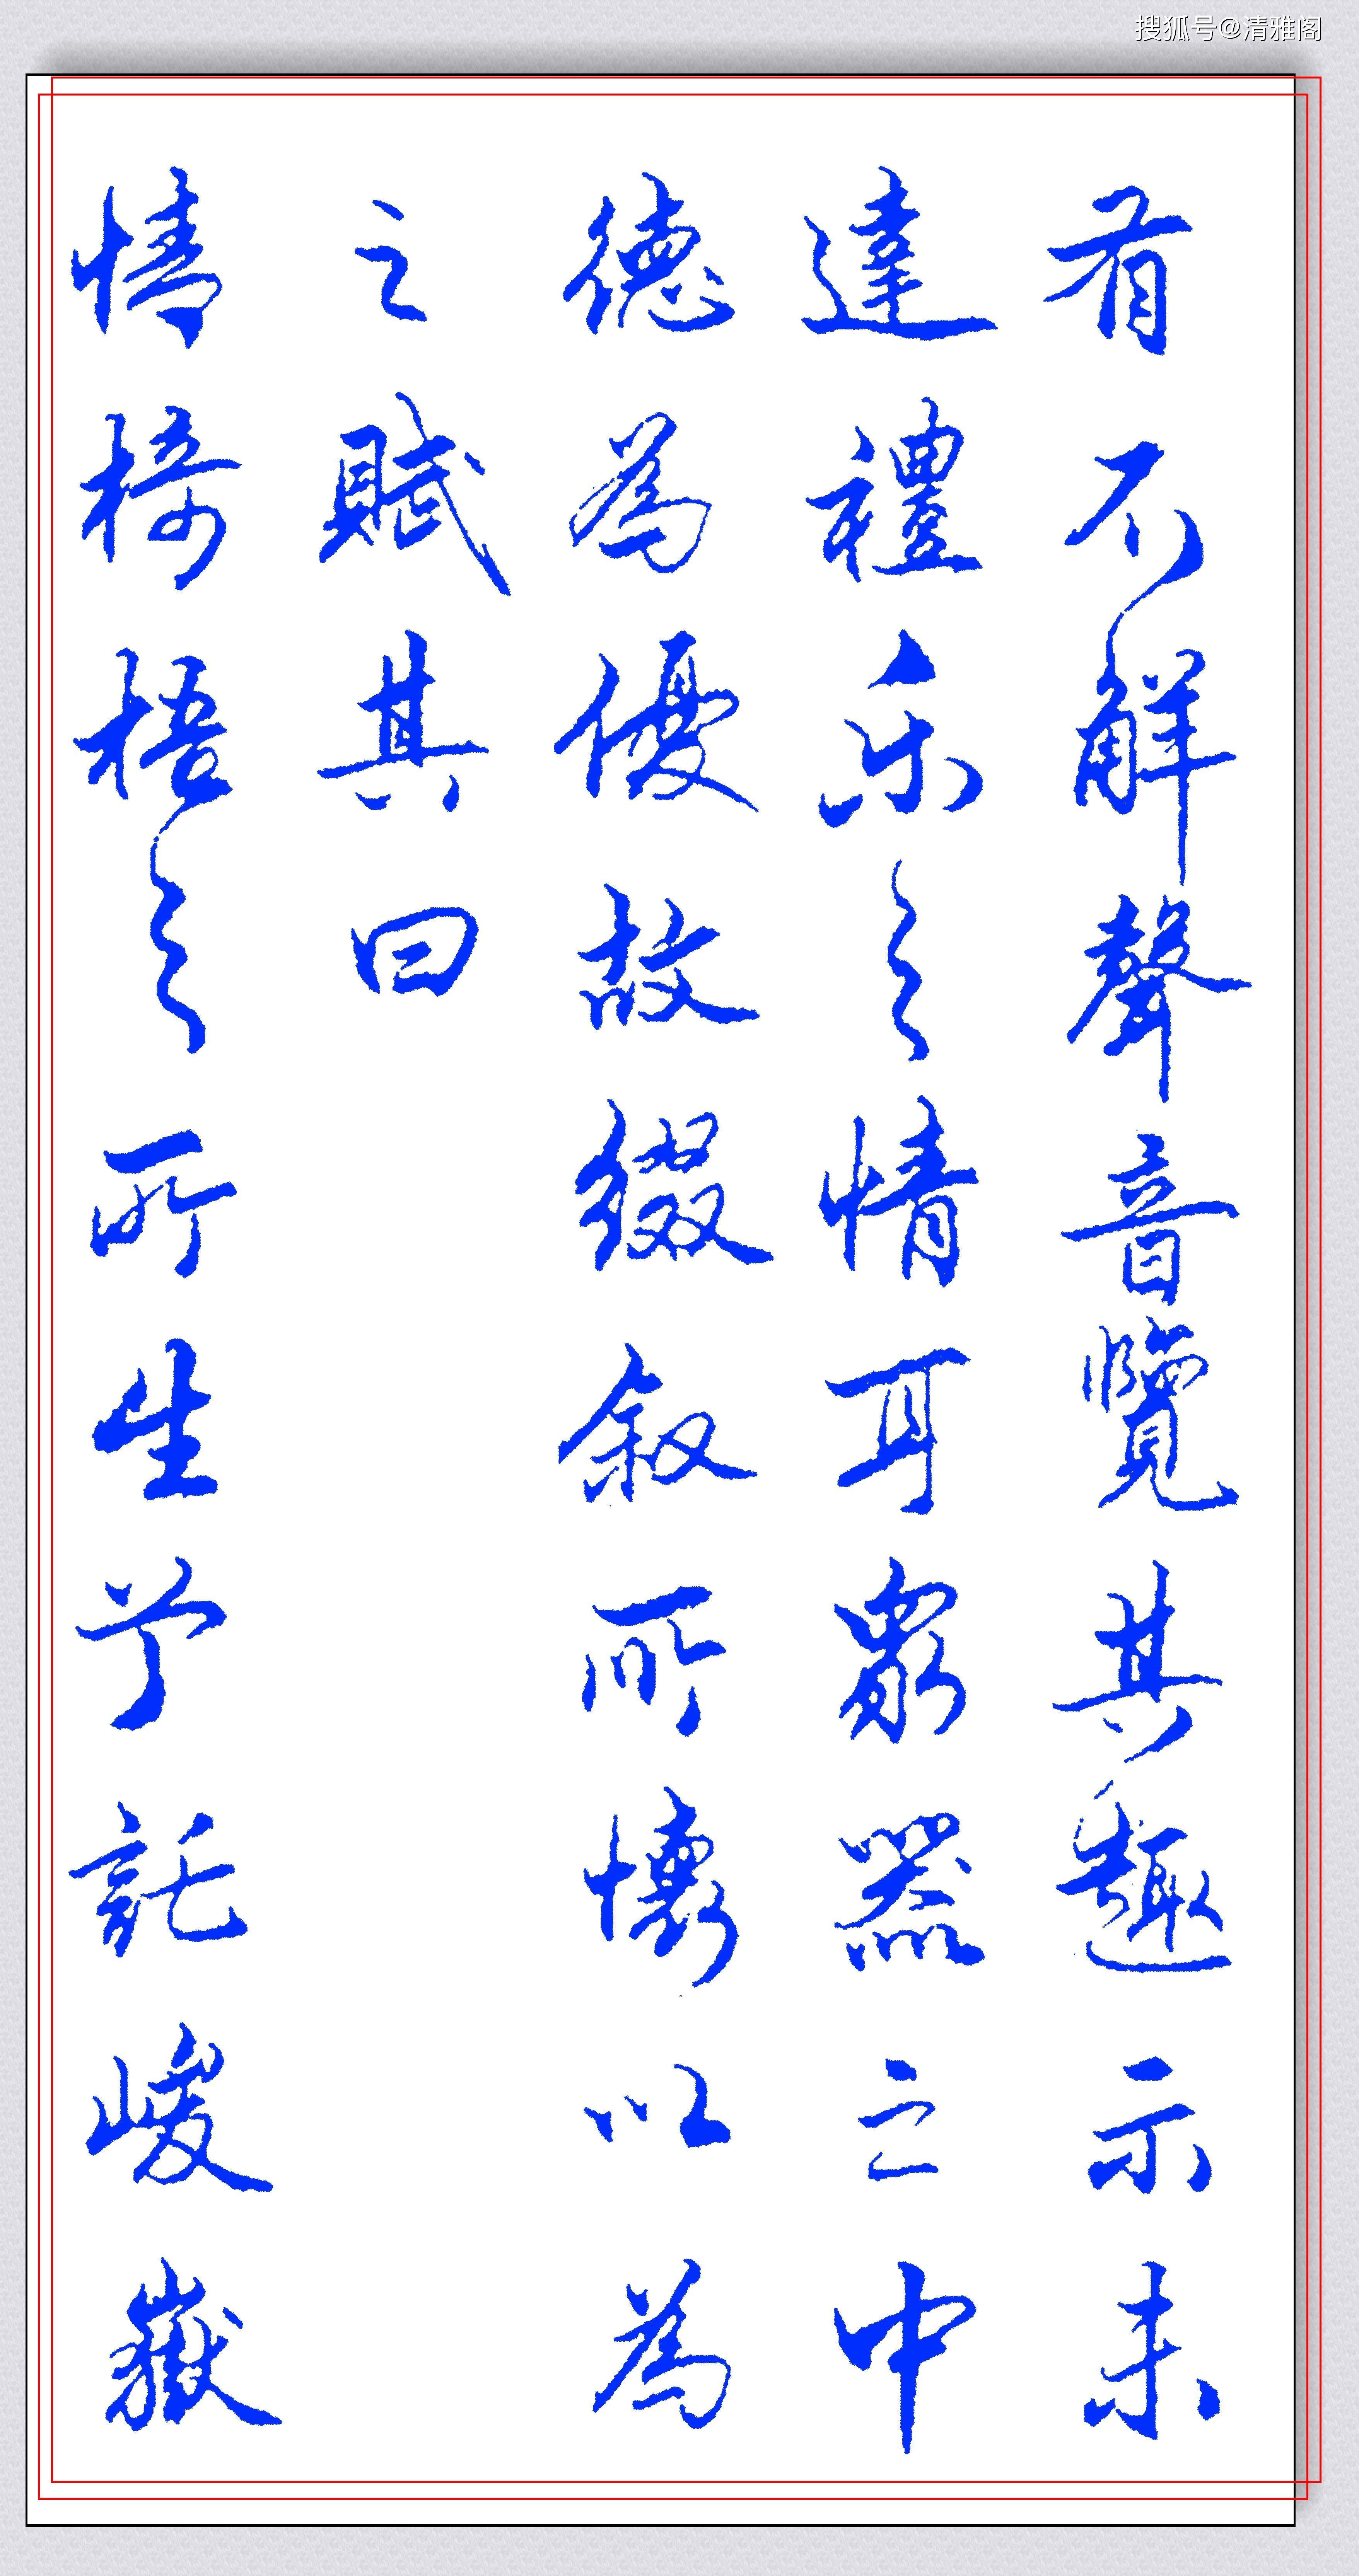 搜狐号@清雅阁
有不解聲音覽其趣示未
達禮乐之情耳眾器之中
德為優故綴叙所懷以為
之賦其曰
情椅梧之所生兮託峻嶽